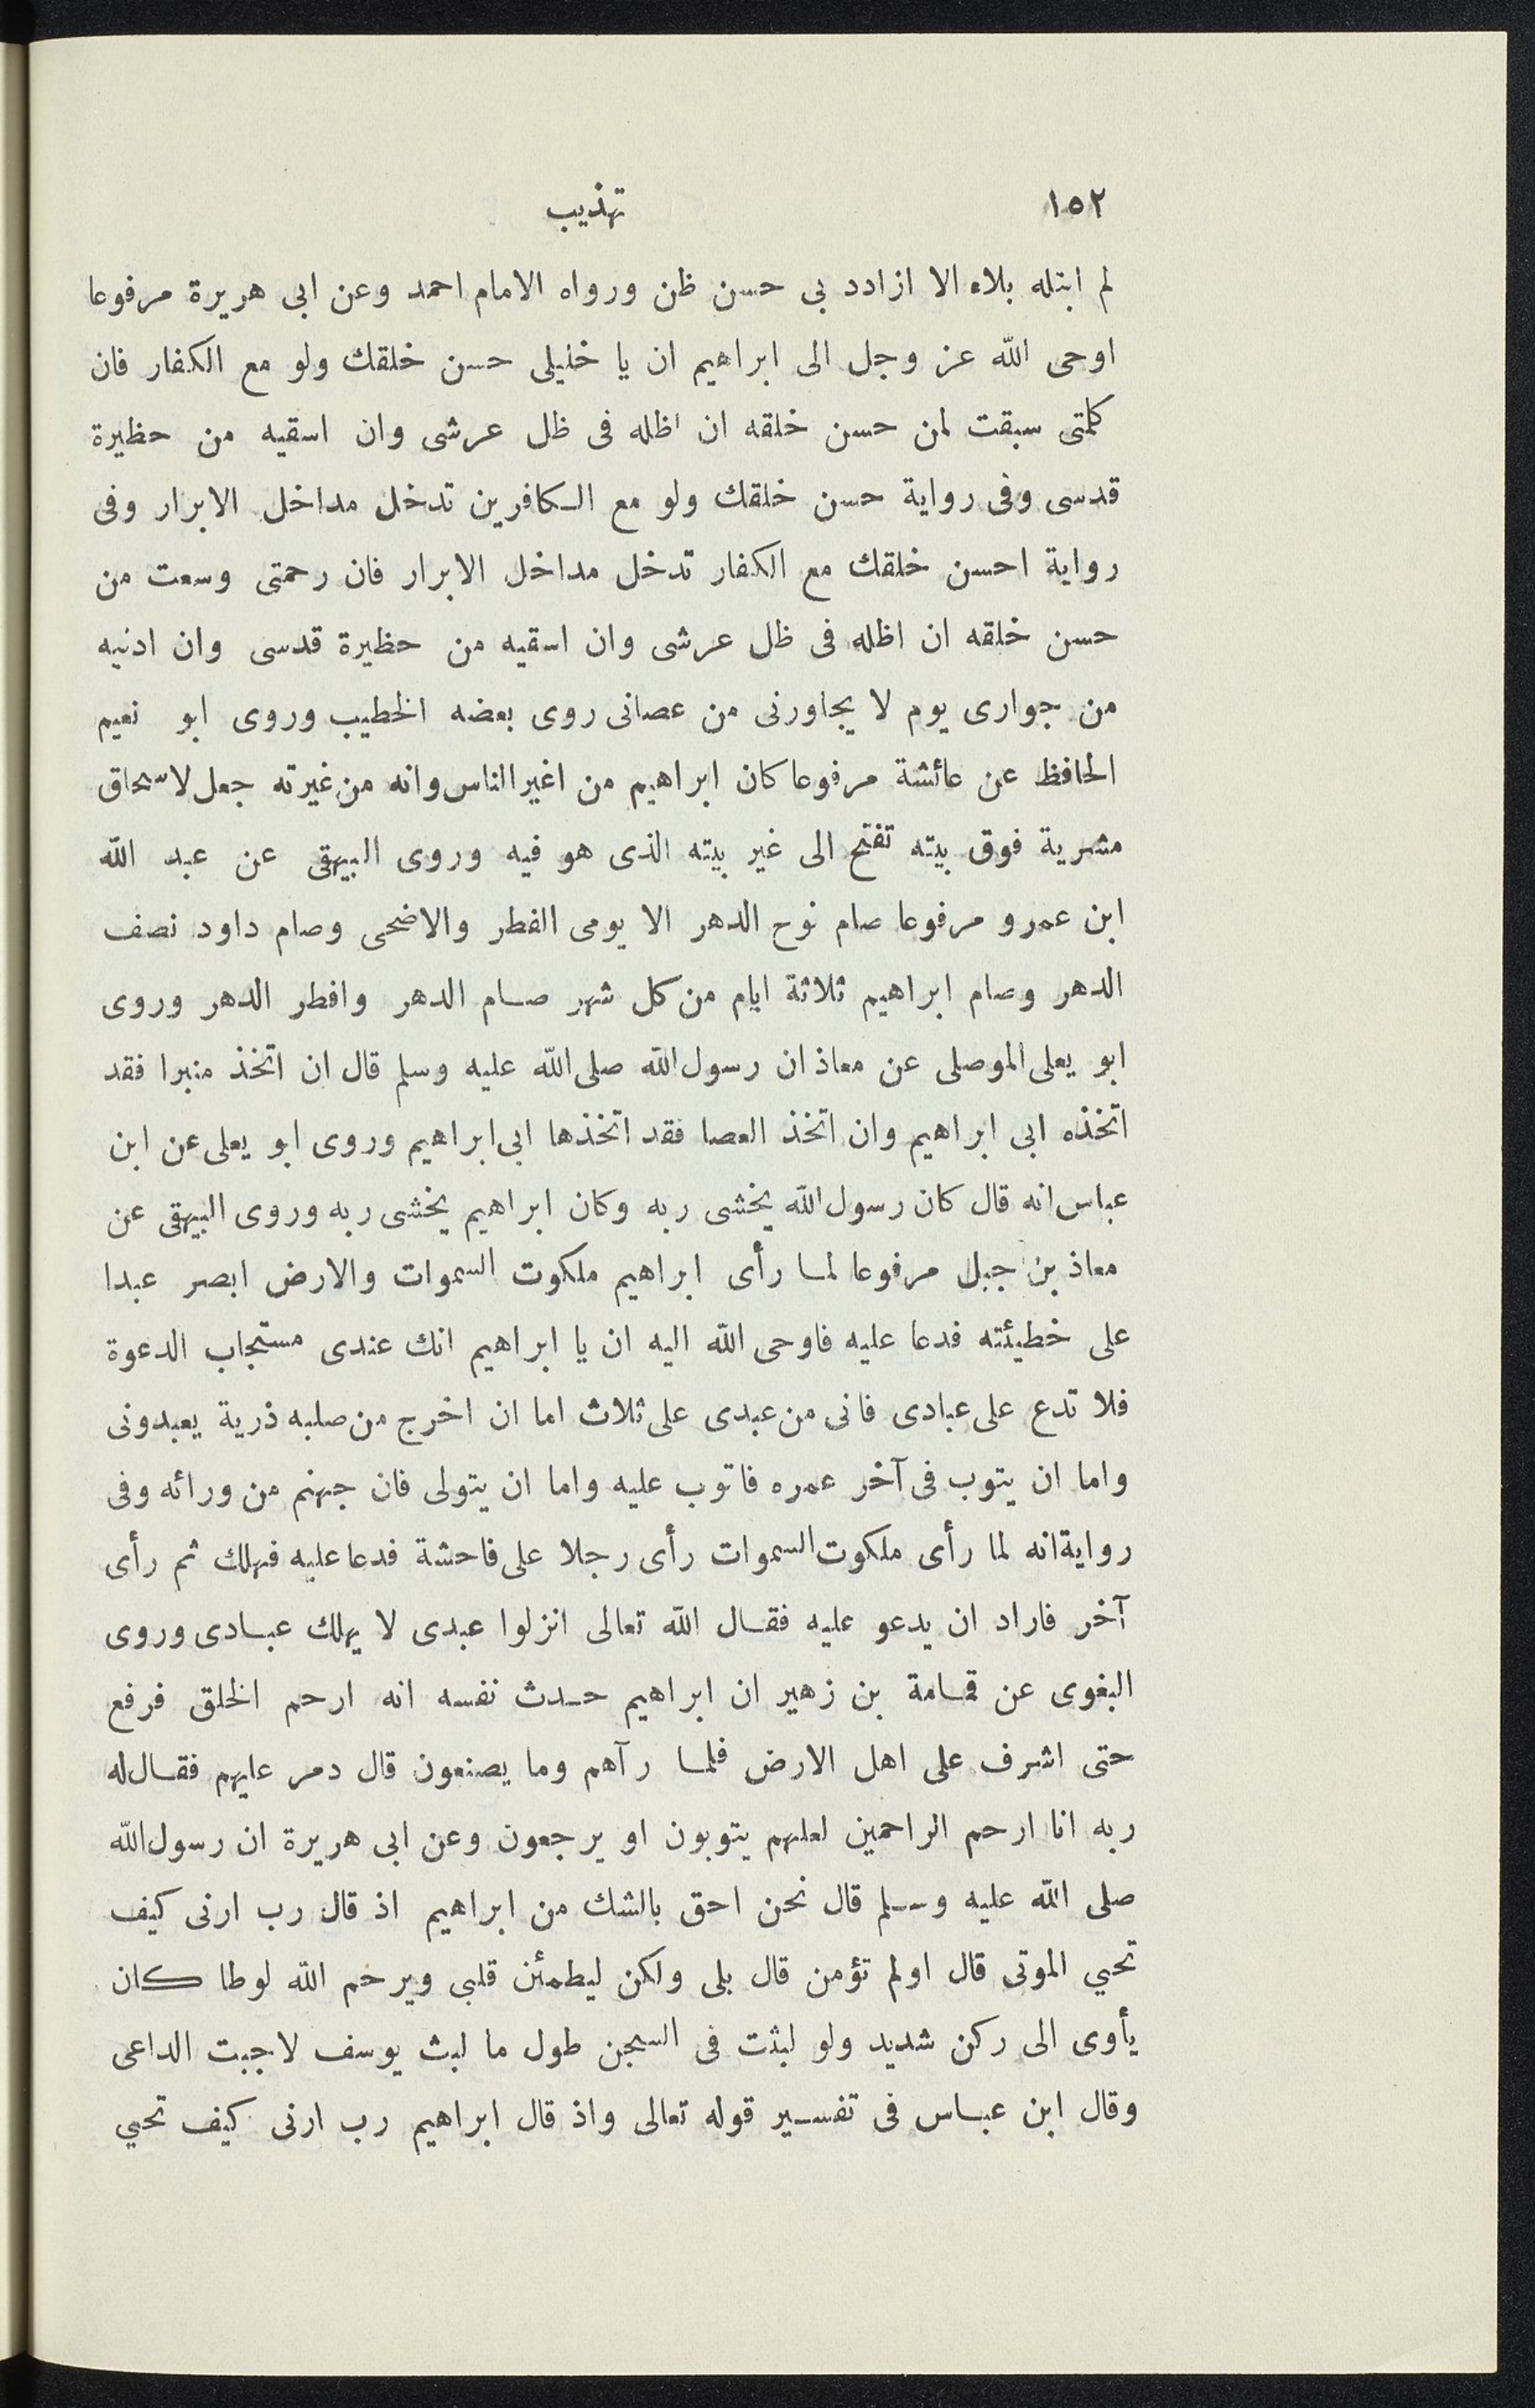 ١٥٢ تهذيب
لم ابتله بلاء الا ازادد بى حسن ظن ورواه الامام احمد وعن ابى هريرة مرفوعا
اوحى الله عز وجل الى ابراهيم ان يا خليلى حسن خلقك ولو مع الكفار فان
كلمتى سبقت لمن حسن خلقه ان اظله فى ظل عرشى وان اسقيه من حظيرة
قدسى وفى رواية حسن خلقك ولو مع الكافرين تدخل مداخل الابرار وفى
رواية احسن خلقك مع الكفار تدخل مداخل الابرار فان رحمتى وسعت من
حسن خلقه ان اظله فى ظل عرشى وان اسقيه من حظيرة قدسى وان ادنيه
من جوارى يوم لا يجاورنى من عصانى روى بعضه الخطيب وروى ابو نعيم
الحافظ عن عائشة مرفوعا كان ابراهيم من اغير الناس وانه من غيرته جعل لاسحاق
مشربة فوق بيته تفتح الى غير بيته الذى هو فيه وروى البيهقى عن عبد الله
ابن عمرو مرفوعا صام نوح الدهر الا يومى الفطر والاضحى وصام داود نصف
الدهر وصام ابراهيم ثلاثة ايام من كل شهر صام الدهر وافطر الدهر وروى
ابو يعلى الموصلى عن معاذ ان رسول الله صلى الله عليه وسلم قال ان اتخذ منبرا فقد
اتخذه ابى ابراهيم وان اتخذ العصا فقد اتخذها ابى ابراهيم وروى ابو يعلى عن ابن
عباس انه قال كان رسول الله يخشى ربه وكان ابراهيم يخشى ربه وروى البيهقى عن
معاذ بن جبل مرفوعا لما رأى ابراهيم ملكوت السموات والارض ابصر عبدا
على خطيئته فدعا عليه فاوحى الله اليه ان يا ابراهيم انك عندى مستجاب الدعوة
فلا تدع على عبادى فانى من عبدى على ثلاث اما ان اخرج من صلبه ذرية يعبدونى
واما ان يتوب فى آخر عمره فاتوب عليه واما ان يتولى فان جهنم من ورائه وفى
رواية انه لما رأى ملكوت السموات رأى رجلا على فاحشة فدعا عليه فهلك ثم رأى
آخر فاراد ان يدعو عليه فقال الله تعالى انزلوا عبدى لا يهلك عبادى وروى
البغوى عن قمامة بن زهير ان ابراهيم حدث نفسه انه ارحم الخلق فرفع
حتى اشرف على اهل الارض فلما رآهم وما يصنعون قال دمر عليهم فقال له
ربه انا ارحم الراحمين لعلهم يتوبون او يرجعون وعن ابى هريرة ان رسول الله
صلى الله عليه وسلم قال نحن احق بالشك من ابراهيم اذ قال رب ارنى كيف
تحيي الموتى قال اولم تؤمن قال بلى ولكن ليطمئن قلبى ويرحم الله لوطا كان
يأوى الى ركن شديد ولو لبثت فى السجن طول ما لبث يوسف لاجبت الداعى
وقال ابن عباس فى تفسير قوله تعالى واذ قال ابراهيم رب ارنى كيف تحيي